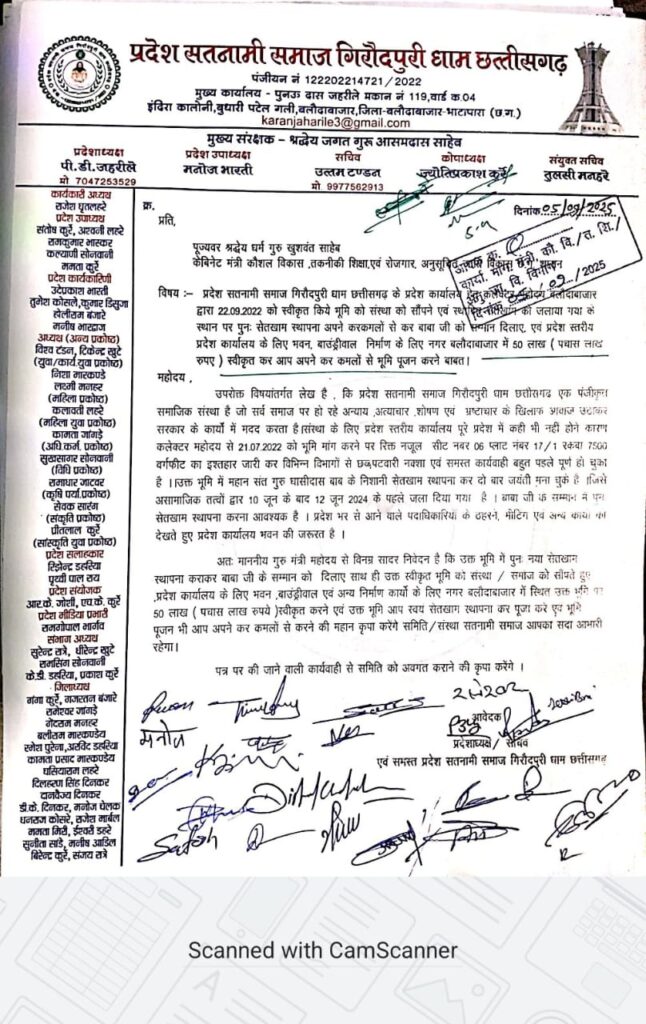 प्रदेश सतनामी समाज गिरौदपुरी धाम छत्तीसगढ़
पंजीयन नं 122202214721/2022
मुख्य कार्यालय - पुनऊ दास जहरीले मकान नं 119,वार्ड क.04
इंदिरा कालोनी,बुधारी पटेल गली,बलौदाबाजार,जिला-बलौदाबाजार-भाटापारा (छ.ग.)
karanjaharile3@gmail.com
मुख्य संरक्षक - श्रद्धेय जगत गुरू आसमदास साहेब
प्रदेशाध्यक्ष
पी.डी.जहरीले
मो 7047253529
प्रदेश उपाध्यक्ष
मनोज भारती
सचिव
उत्तम टण्डन
मो 9977562913
कोषाध्यक्ष
ज्योतिप्रकाश कुर्रे
संयुक्त सचिव
तुलसी मनहरे
कार्यकारी अध्यक्ष
राजेश घृतलहरे
प्रदेश उपाध्यक्ष
संतोष कुर्रे, अश्वनी लहरे
रामकुमार भास्कर
कल्याणी सोनवानी
ममता कुर्रे
प्रदेश कार्यकारिणी
उदेप्रकाश भारती
तुमेश कोसले,कुमार डिसुजा
होलीराम बंजारे
मनीष भारद्वाज
अध्यक्ष (अन्य प्रकोष्ठ)
विश्व टंडन, टिकेन्द्र खुटे
(युवा/कार्य.युवा प्रकोष्ठ)
निशा मारकण्डे
लक्ष्मी मनहर
(महिला प्रकोष्ठ)
कलावती लहरे
(महिला युवा प्रकोष्ठ)
कामता गांगड़े
(अधि.कर्म. प्रकोष्ठ)
सुखसागर सोनवानी
(विधि प्रकोष्ठ)
रामाधार जाटवर
(कृषि पर्या.प्रकोष्ठ)
सेवक सारंग
(संकृति प्रकोष्ठ)
प्रीतलाल कुर्रे
(सांस्कृति युवा प्रकोष्ठ)
प्रदेश सलाहकार
रिझेन्द्र डहरिया
पृथ्वी पाल राय
प्रदेश संयोजक
आर.के. जोशी, एच.के. कुर्रे
प्रदेश मीडिया प्रभारी
रामगोपाल भार्गव
संभाग अध्यक्ष
सुरेन्द्र रात्रे, धीरेन्द्र खुटे
रामसिंग सोनवानी
के.डी. डहरिया, प्रकाश कुर्रे
जिलाध्यक्ष
गंगा कुर्रे, गजरतन बंजारे
रामेश्वर गांगड़े
गेंदराम मनहर
बलीराम मारकण्डेय
रमेश पुरेना,अरविंद डहरिया
कामता प्रसाद मारकण्डेय
घसियाराम लहरे
दिलहरण सिंह दिनकर
दानवैज्य दिनकर
डी.के. दिनकर, मनोज घेलक
धनराज कोसरे, राजेश मार्बल
ममता गिरी, ईश्वरी डहरे
सुनीता साडे, मनीष आडिल
बिरेन्द्र कुर्रे, संजय रात्रे
क्र.
दिनांक.05/09/2025
प्रति,
पूज्यवर श्रद्धेय धर्म गुरु खुशवंत साहेब
केबिनेट मंत्री कौशल विकास ,तकनीकी शिक्षा,एवं रोजगार, अनुसूचित
जावक क्र.
कार्या. मान. मंत्री, कौ. वि./त. शि./
दिनांक 09/2025
विषय :- प्रदेश सतनामी समाज गिरौदपुरी धाम छत्तीसगढ़ के प्रदेश कार्यालय बलौदाबाजार
द्वारा 22.09.2022 को स्वीकृत किये भूमि को संस्था को सौंपने एवं को जलाया गया के
स्थान पर पुनः सेतखाम स्थापना अपने करकमलों से कर बाबा जी को सम्मान दिलाए, एवं प्रदेश स्तरीय
प्रदेश कार्यालय के लिए भवन, बाउंड्रीवाल निर्माण के लिए नगर बलौदाबाजार में 50 लाख ( पचास लाख
रुपए ) स्वीकृत कर आप अपने कर कमलों से भूमि पूजन करने बाबत।
महोदय ,
उपरोक्त विषयांतर्गत लेख है , कि प्रदेश सतनामी समाज गिरौदपुरी धाम छत्तीसगढ़ एक पंजीकृत
समाजिक संस्था है जो सर्व समाज पर हो रहे अन्याय ,अत्याचार ,शोषण एवं भ्रष्टाचार के खिलाफ आवाज उठाकर
सरकार के कार्यो में मदद करता है।संस्था के लिए प्रदेश स्तरीय कार्यालय पूरे प्रदेश में कही भी नही होने कारण
कलेक्टर महोदय से 21.07.2022 को भूमि मांग करने पर रिक्त नजूल सीट नंबर 06 प्लाट नंबर 17/1 रकबा 7500
वर्गफीट का इश्तहार जारी कर विभिन्न विभागों से छडपटवारी नक्शा एवं समस्त कार्यवाही बहुत पहले पूर्ण हो चुका
है ।उक्त भूमि में महान संत गुरु घासीदास बाबा के निशानी सेतखाम स्थापना कर दो बार जयंती मना चुके है ।जिसे
असामाजिक तत्वों द्वारा 10 जून के बाद 12 जून 2024 के पहले जला दिया गया है । बाबा जी के सम्मान में पुनः
सेतखाम स्थापना करना आवश्यक है । प्रदेश भर से आने वाले पदाधिकारियों के ठहरने, मीटिंग एवं अन्य कार्यो को
देखते हुए प्रदेश कार्यालय भवन की जरूरत है ।
अतः माननीय गुरु मंत्री महोदय से विनम्र सादर निवेदन है कि उक्त भूमि में पुनः नया सेतखाम
स्थापना कराकर बाबा जी के सम्मान को दिलाए साथ ही उक्त स्वीकृत भूमि को संस्था / समाज को सौंपते हुए
,प्रदेश कार्यालय के लिए भवन ,बाउंड्रीवाल एवं अन्य निर्माण कार्यो के लिए नगर बलौदाबाजार में स्थित उक्त भूमि पर
50 लाख ( पचास लाख रुपये )स्वीकृत करने एवं उक्त भूमि आप स्वयं सेतखाम स्थापना कर पूजा करे एवं भूमि
पूजन भी आप अपने कर कमलों से करने की महान कृपा करेंगे समिति/संस्था सतनामी समाज आपका सदा आभारी
रहेगा।
पत्र पर की जाने वाली कार्यवाही से समिति को अवगत कराने की कृपा करेंगे ।
मनोज
आवेदक
प्रदेशाध्यक्ष/ सचिव
एवं समस्त प्रदेश सतनामी समाज गिरौदपुरी धाम छत्तीसगढ़
Scanned with CamScanner